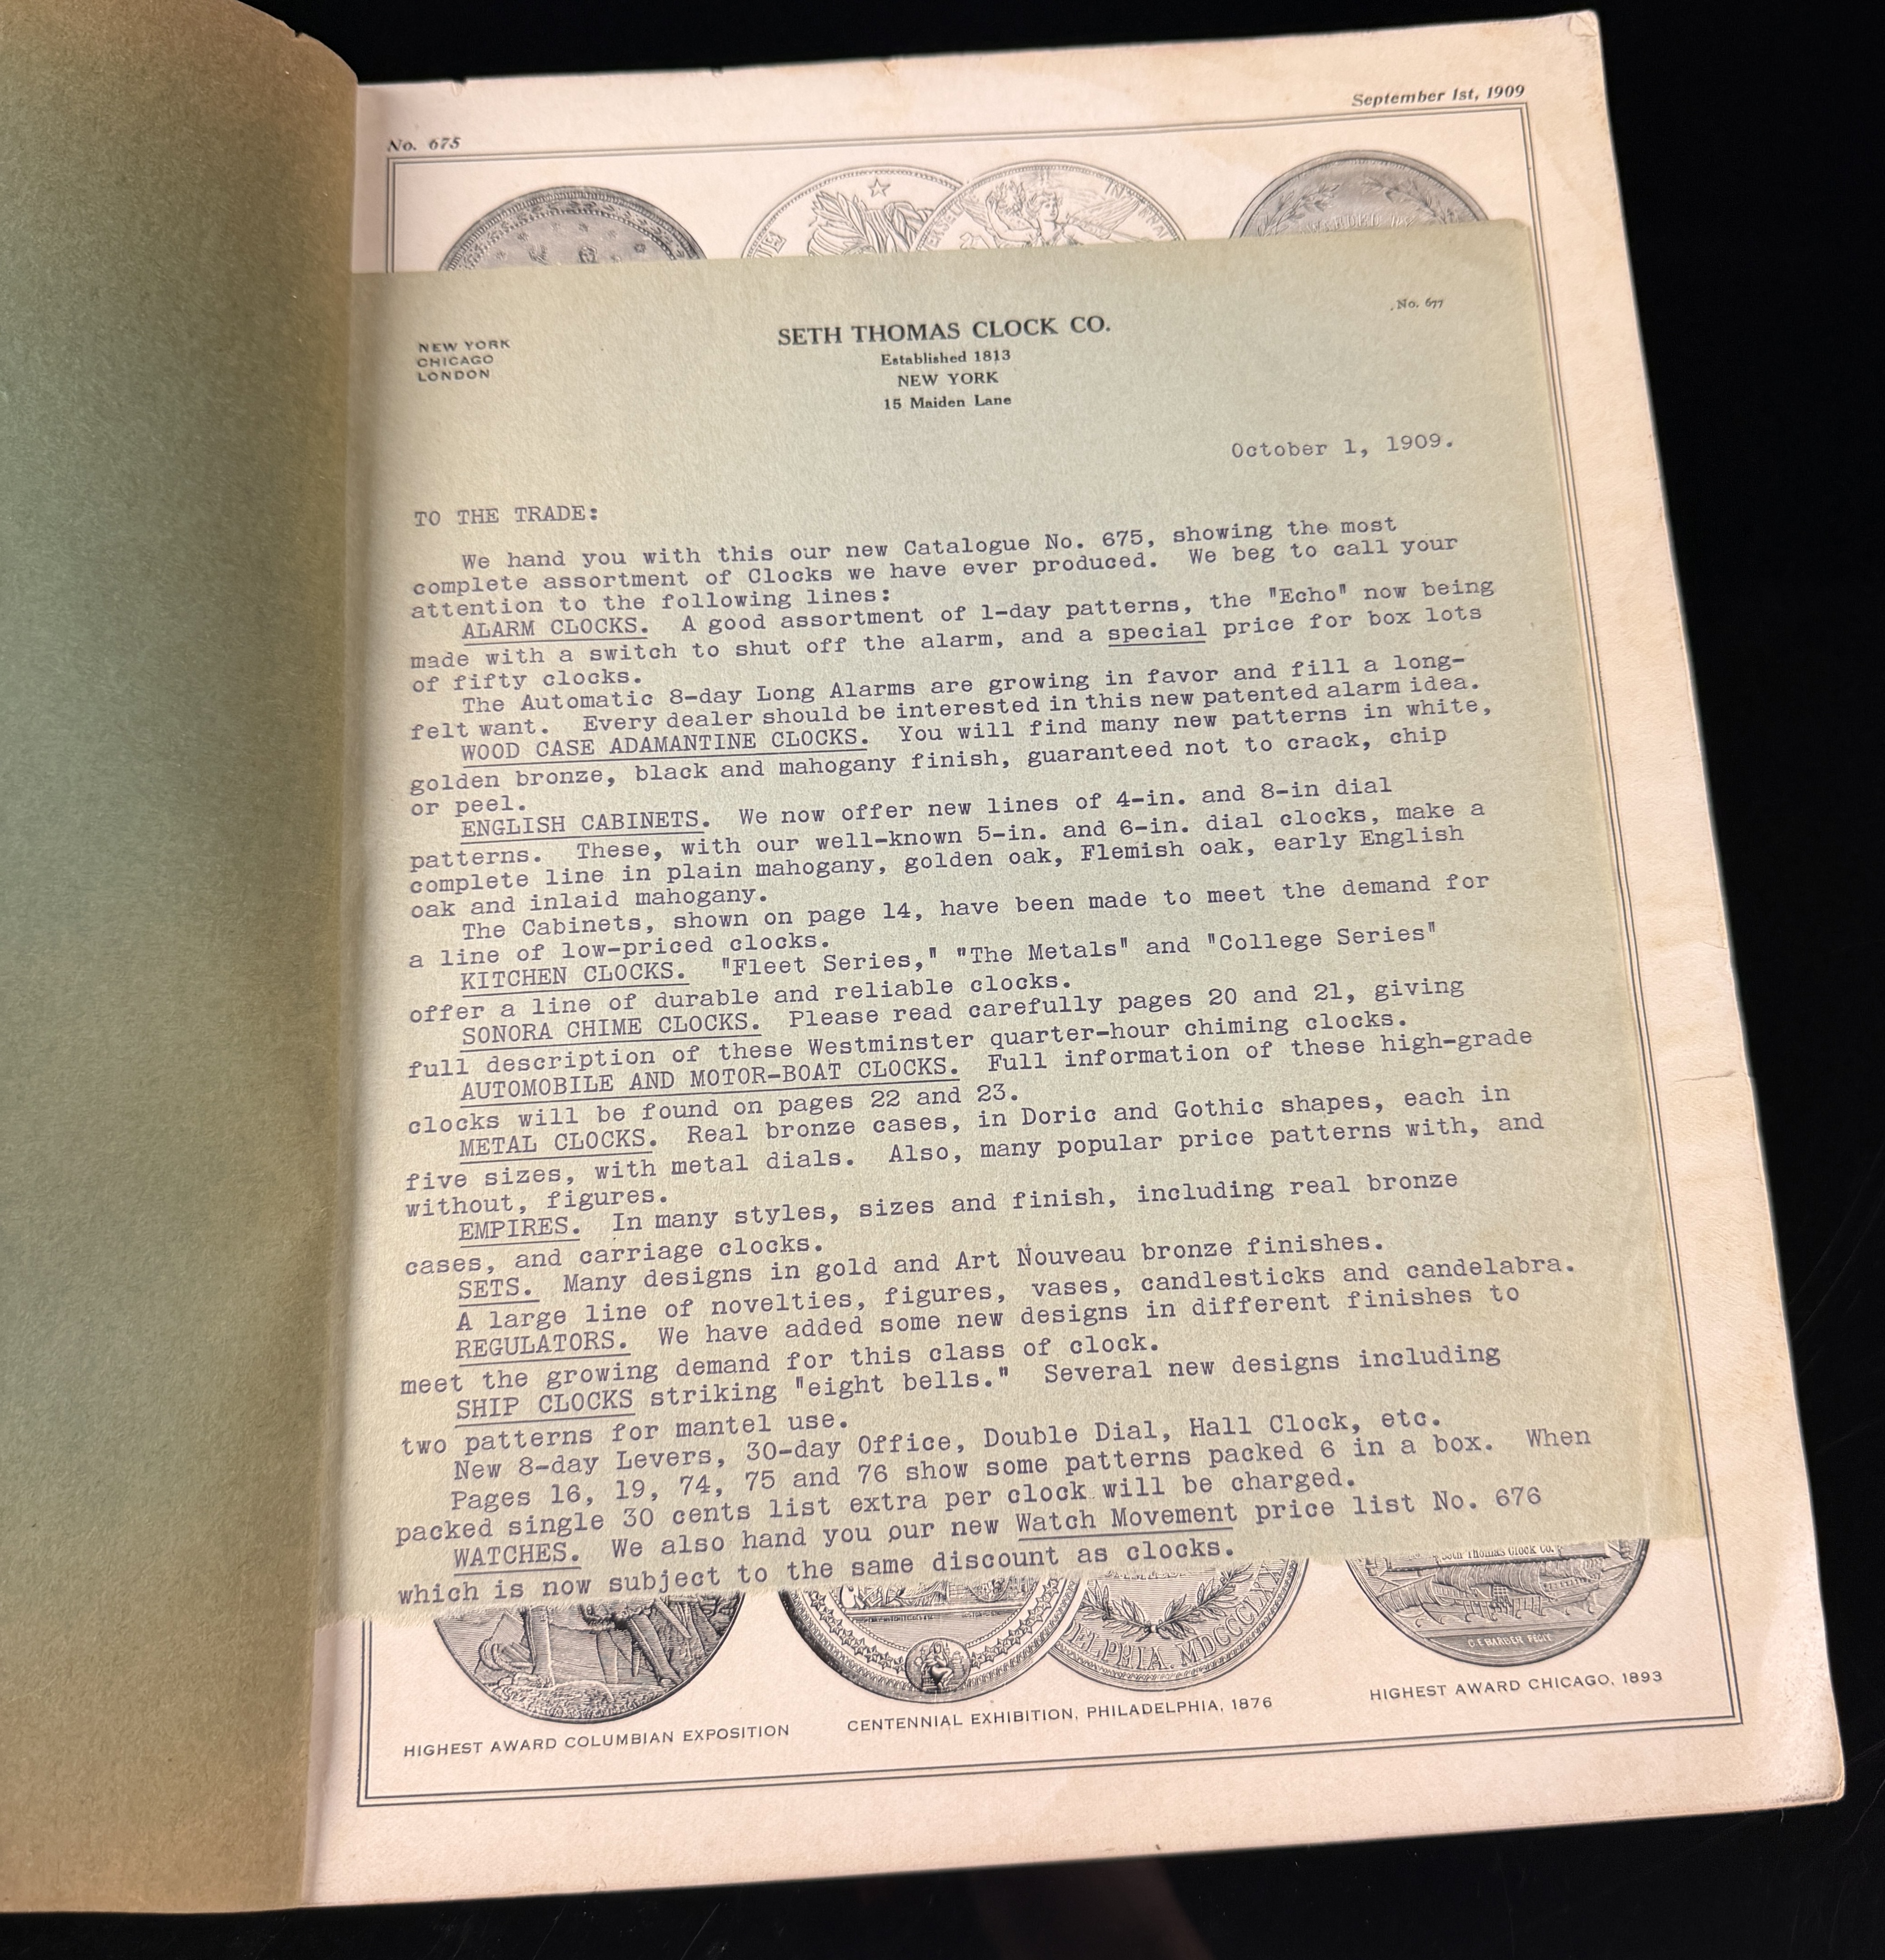 No. 675
September 1st, 1909
No. 677
NEW YORK
CHICAGO
LONDON
SETH THOMAS CLOCK CO.
Established 1813
NEW YORK
15 Maiden Lane
October 1, 1909.
TO THE TRADE:
We hand you with this our new Catalogue No. 675, showing the most
complete assortment of Clocks we have ever produced. We beg to call your
attention to the following lines:
ALARM CLOCKS. A good assortment of 1-day patterns, the "Echo" now being
made with a switch to shut off the alarm, and a special price for box lots
of fifty clocks.
The Automatic 8-day Long Alarms are growing in favor and fill a long-
felt want. Every dealer should be interested in this new patented alarm idea.
WOOD CASE ADAMANTINE CLOCKS. You will find many new patterns in white,
golden bronze, black and mahogany finish, guaranteed not to crack, chip
or peel.
ENGLISH CABINETS. We now offer new lines of 4-in. and 8-in dial
patterns. These, with our well-known 5-in. and 6-in. dial clocks, make a
complete line in plain mahogany, golden oak, Flemish oak, early English
oak and inlaid mahogany.
The Cabinets, shown on page 14, have been made to meet the demand for
a line of low-priced clocks.
KITCHEN CLOCKS. "Fleet Series," "The Metals" and "College Series"
offer a line of durable and reliable clocks.
SONORA CHIME CLOCKS. Please read carefully pages 20 and 21, giving
full description of these Westminster quarter-hour chiming clocks.
AUTOMOBILE AND MOTOR-BOAT CLOCKS. Full information of these high-grade
clocks will be found on pages 22 and 23.
METAL CLOCKS. Real bronze cases, in Doric and Gothic shapes, each in
five sizes, with metal dials. Also, many popular price patterns with, and
without, figures.
EMPIRES. In many styles, sizes and finish, including real bronze
cases, and carriage clocks.
SETS. Many designs in gold and Art Nouveau bronze finishes.
A large line of novelties, figures, vases, candlesticks and candelabra.
REGULATORS. We have added some new designs in different finishes to
meet the growing demand for this class of clock.
SHIP CLOCKS striking "eight bells." Several new designs including
two patterns for mantel use.
New 8-day Levers, 30-day Office, Double Dial, Hall Clock, etc.
Pages 16, 19, 74, 75 and 76 show some patterns packed 6 in a box. When
packed single 30 cents list extra per clock will be charged.
WATCHES. We also hand you our new Watch Movement price list No. 676
which is now subject to the same discount as clocks.
Seth Thomas Clock Co.
C.E. BARBER FECIT.
HIGHEST AWARD COLUMBIAN EXPOSITION
CENTENNIAL EXHIBITION, PHILADELPHIA, 1876
HIGHEST AWARD CHICAGO, 1893